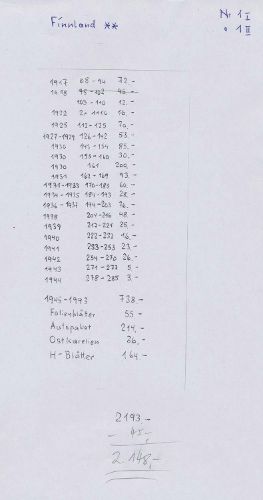 Finnland **
Nr. 1 I
" 1 II
1917 68-94 72.-
1918 95-102 45.-
103-110 12.-
1922 16.-
1925 112-125 70.-
1927-1929 126-142 53.-
1930 143-154 85.-
1930 155-160 30.-
1930 161 200,-
1931 162-169 93.-
170-183 60.-
184-193 28.-
1936-1937 194-203 26.-
1938 204-216 48.-
1939 217-221 25.-
1940 222-232 16.-
1941 233-253 23.-
1942 254-270 26.-
1943 271-277 5.-
1944 278-285 3.-
1945-1973 738.-
Folienblätter 55.-
Autopaket 214,-
Ostkarelien 26,-
H-Blätter 164.-
2193.-
- 45,-
2.148,-